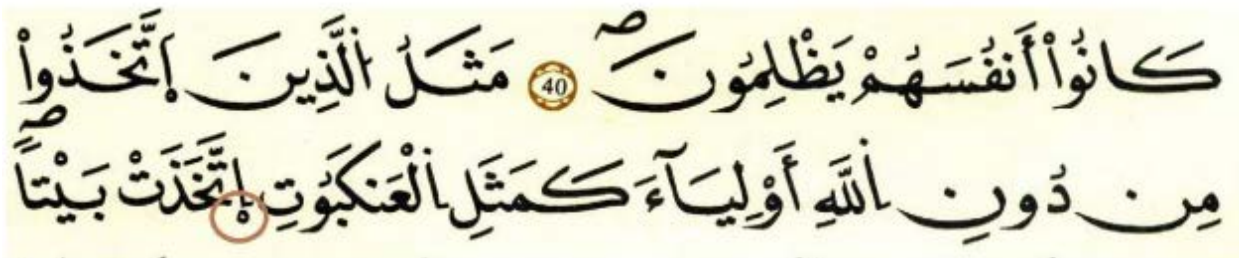 كَانُوٓاْ أَنفُسَهُمْ يَظْلِمُونَۖ 40 مَثَلُ اُ۬لذِينَ اَ۪تَّخَذُواْ
مِن دُونِ اِ۬للَّهِ أَوْلِيَآءَ كَمَثَلِ اِ۬لْعَنكَبُوتِ اِ۪تَّخَذَتْ بَيْتاٗۖ